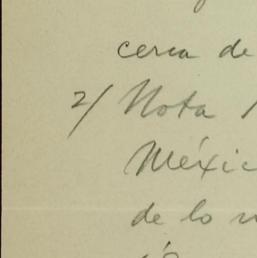 cerca de
2/ Nota
Méxic
de lo